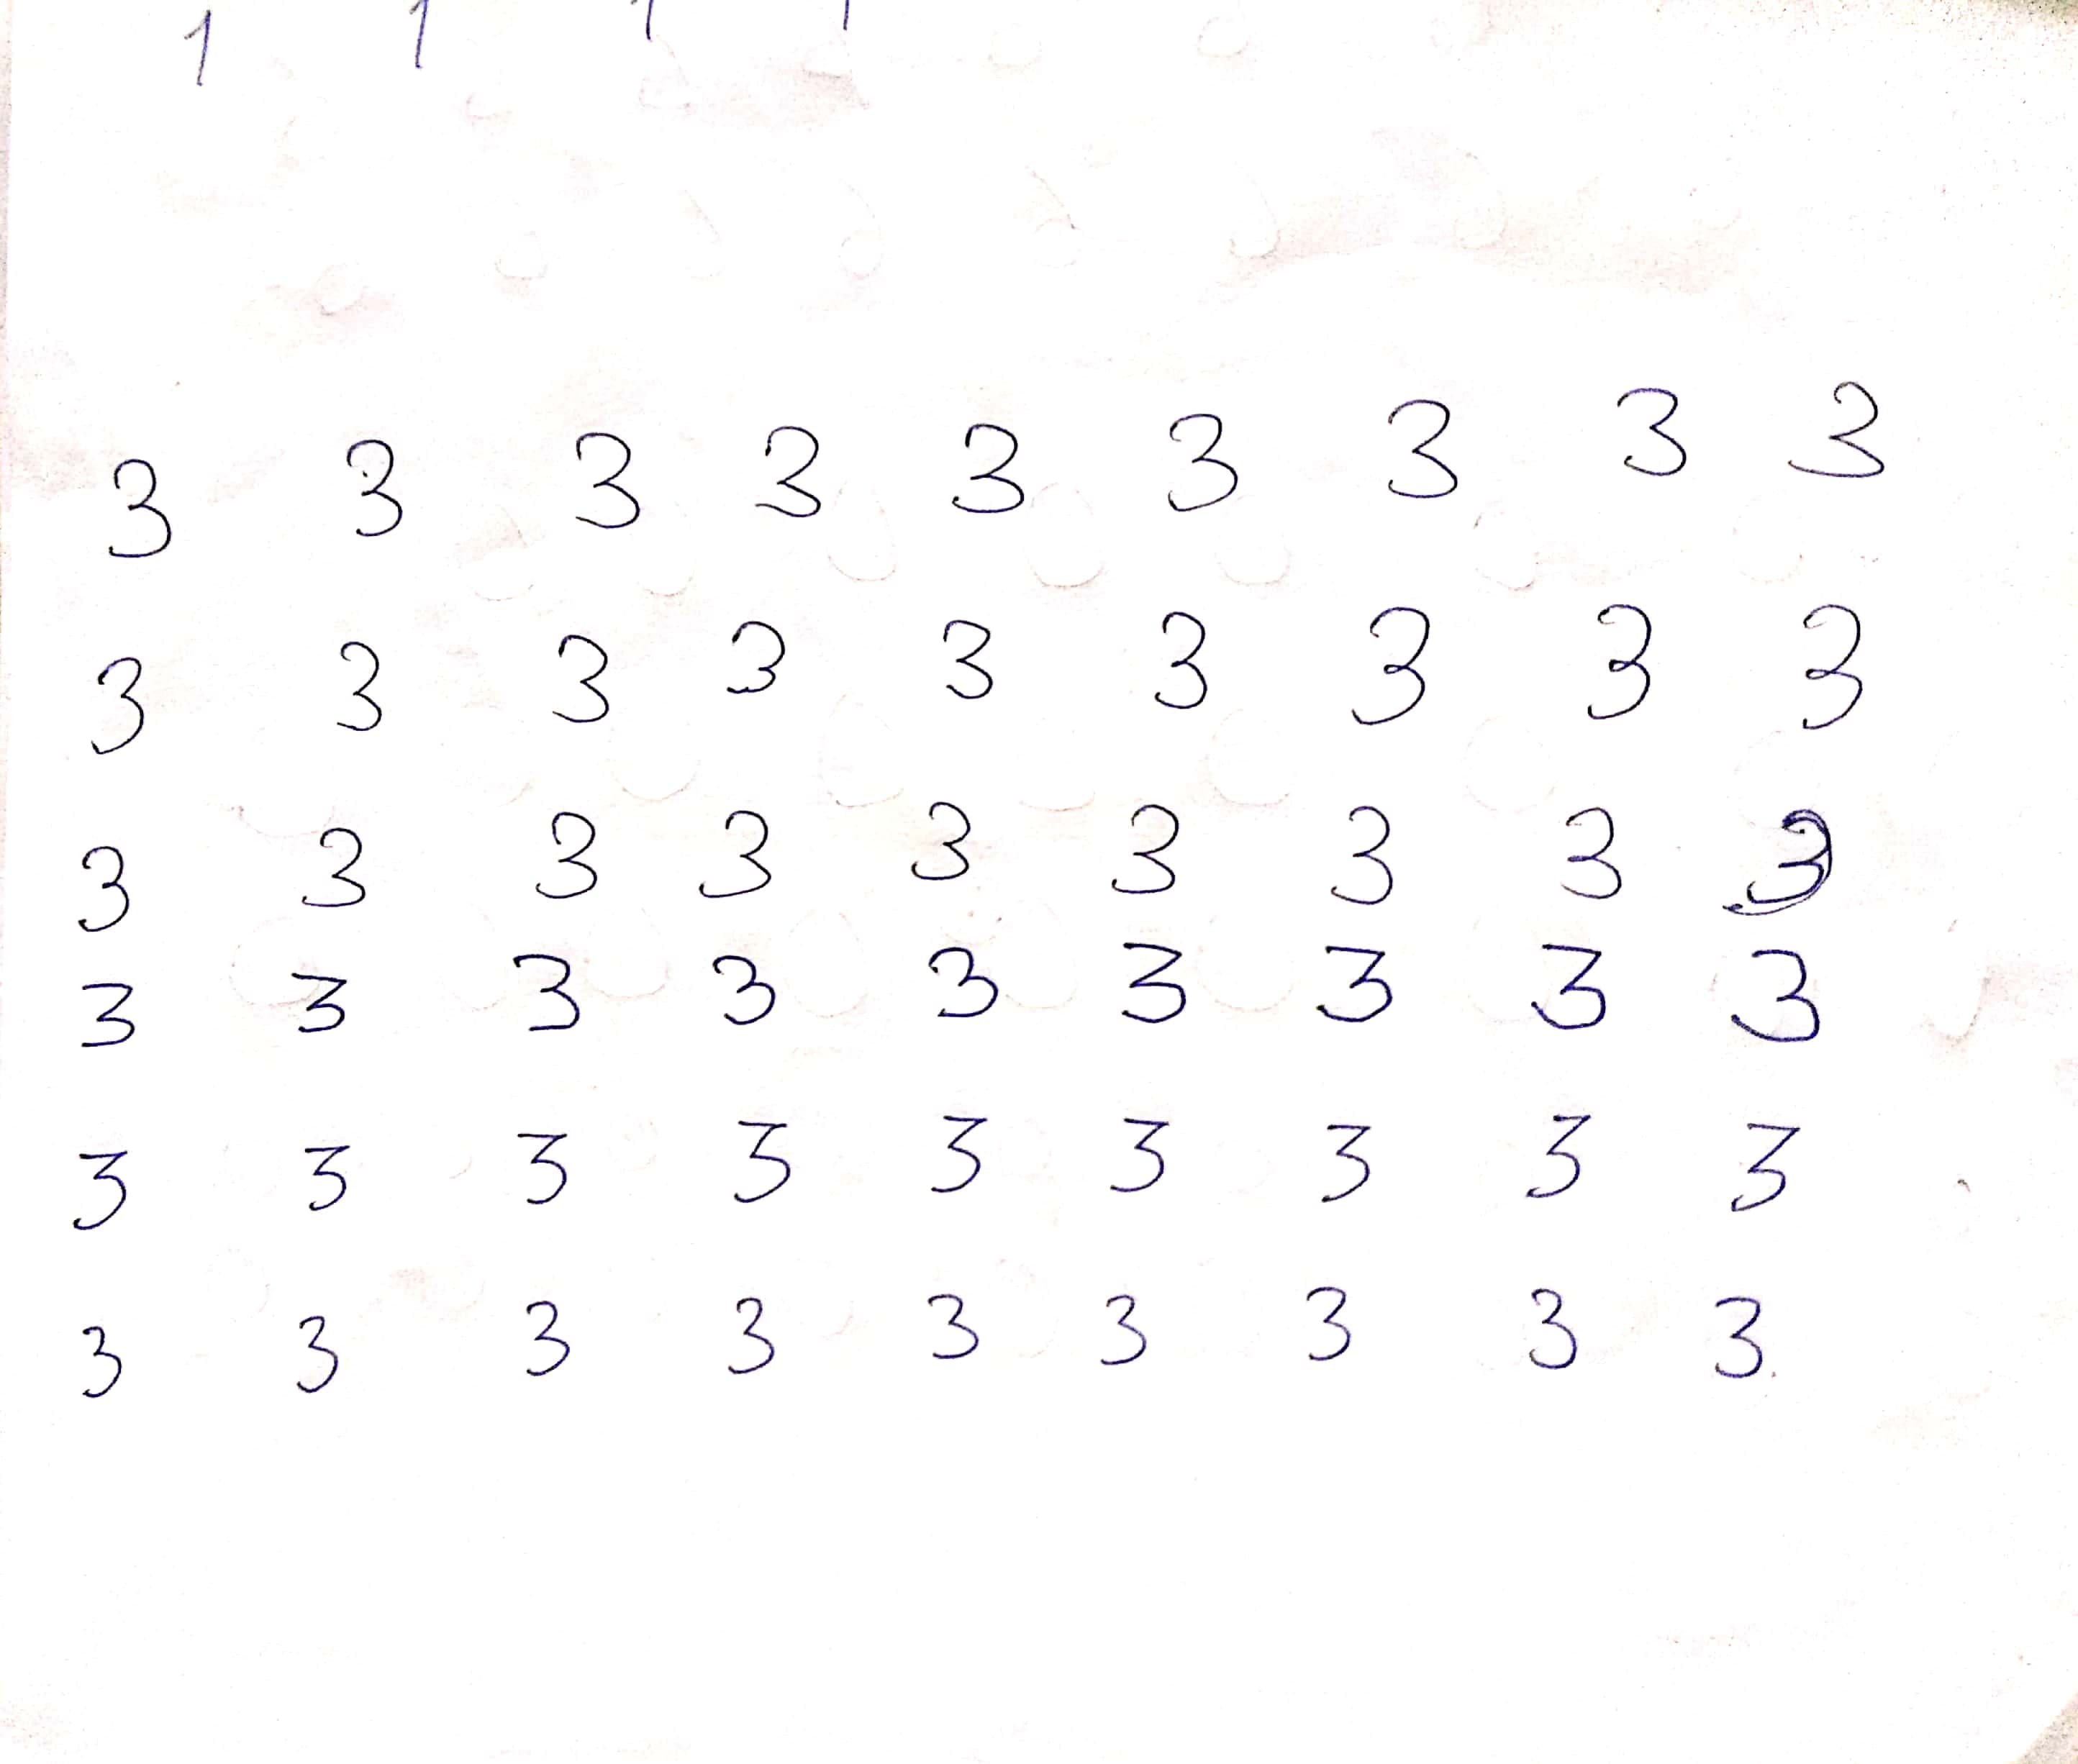 1 1 1 1
3 3 3 3 3 3 3 3 3
3 3 3 3 3 3 3 3 3
3 3 3 3 3 3 3 3 3
3 3 3 3 3 3 3 3 3
3 3 3 3 3 3 3 3 3
3 3 3 3 3 3 3 3 3.